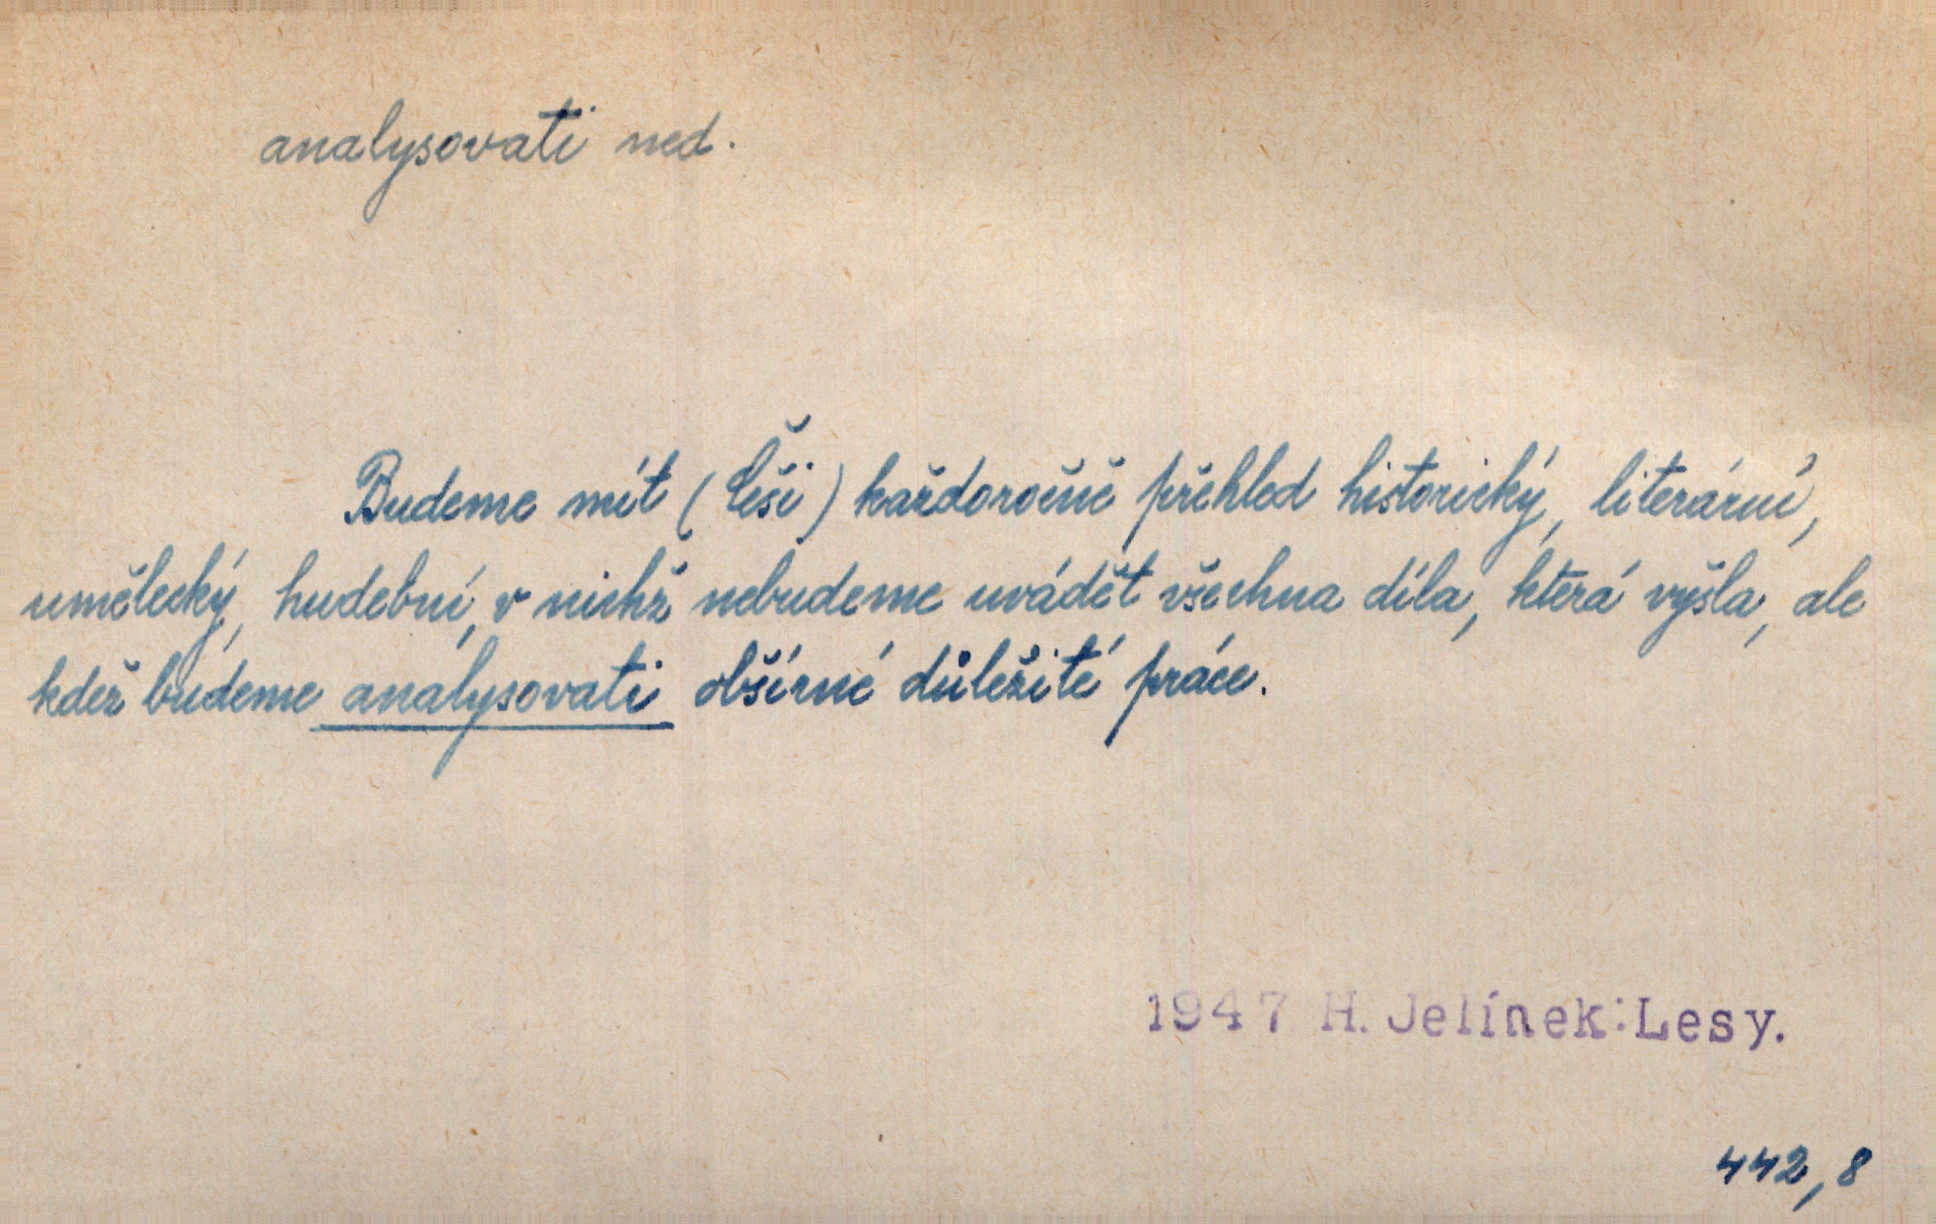 analysovati ned.
Budeme mít (Češi) každoročně přehled historický, literární,
umělecký, hudební, v nichž nebudeme uvádět všechna díla, která vyšla, ale
kdež budeme analysovati obšírné důležité práce.
1947 H. Jelínek: Lesy.
442,8